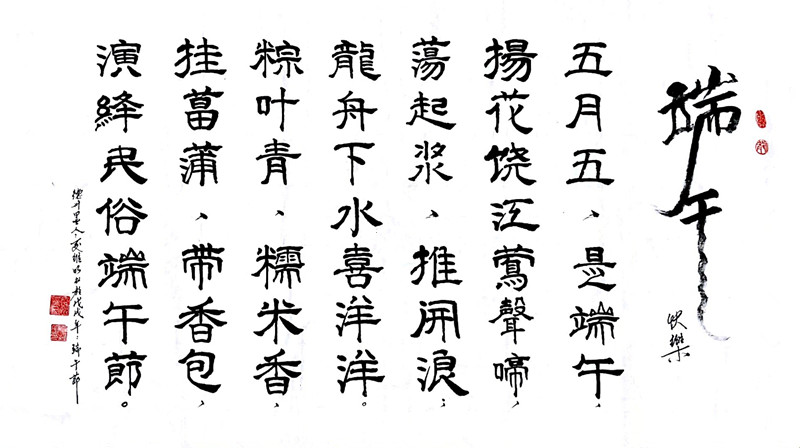 端午
快樂
五月五、是端午，
揚花饶江鶯聲啼，
蕩起浆、推開浪，
龍舟下水喜洋洋。
粽叶青、糯米香，
挂菖蒲、带香包，
演绎民俗端午節。
戊戌年：端午節